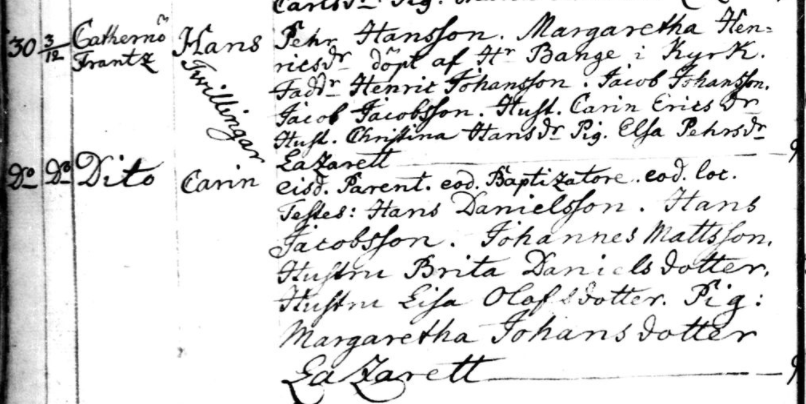 30 3/12 Cathernö Frantz Hans Pehr Hansson. Margaretha Hen=
ricsdr döpt af Hr Bange i Kyrk.
Faddr Henric Johansson. Jacob Johansson.
Twillingar
Jacob Jacobsson. Hust. Carin Ericsdr
Hust. Christina Hansdr Pig. Elsa Pehrsdr
Lazarett
Do Do Dito Carin eisd. Parent. eod. Baptizatore. eod. loc.
Testes: Hans Danielsson. Hans
Jacobsson. Johannes Mattsson.
Hustru Brita Danielsdotter.
Hustru Lisa Olofsdotter. Pig:
Margaretha Johansdotter
Lazarett